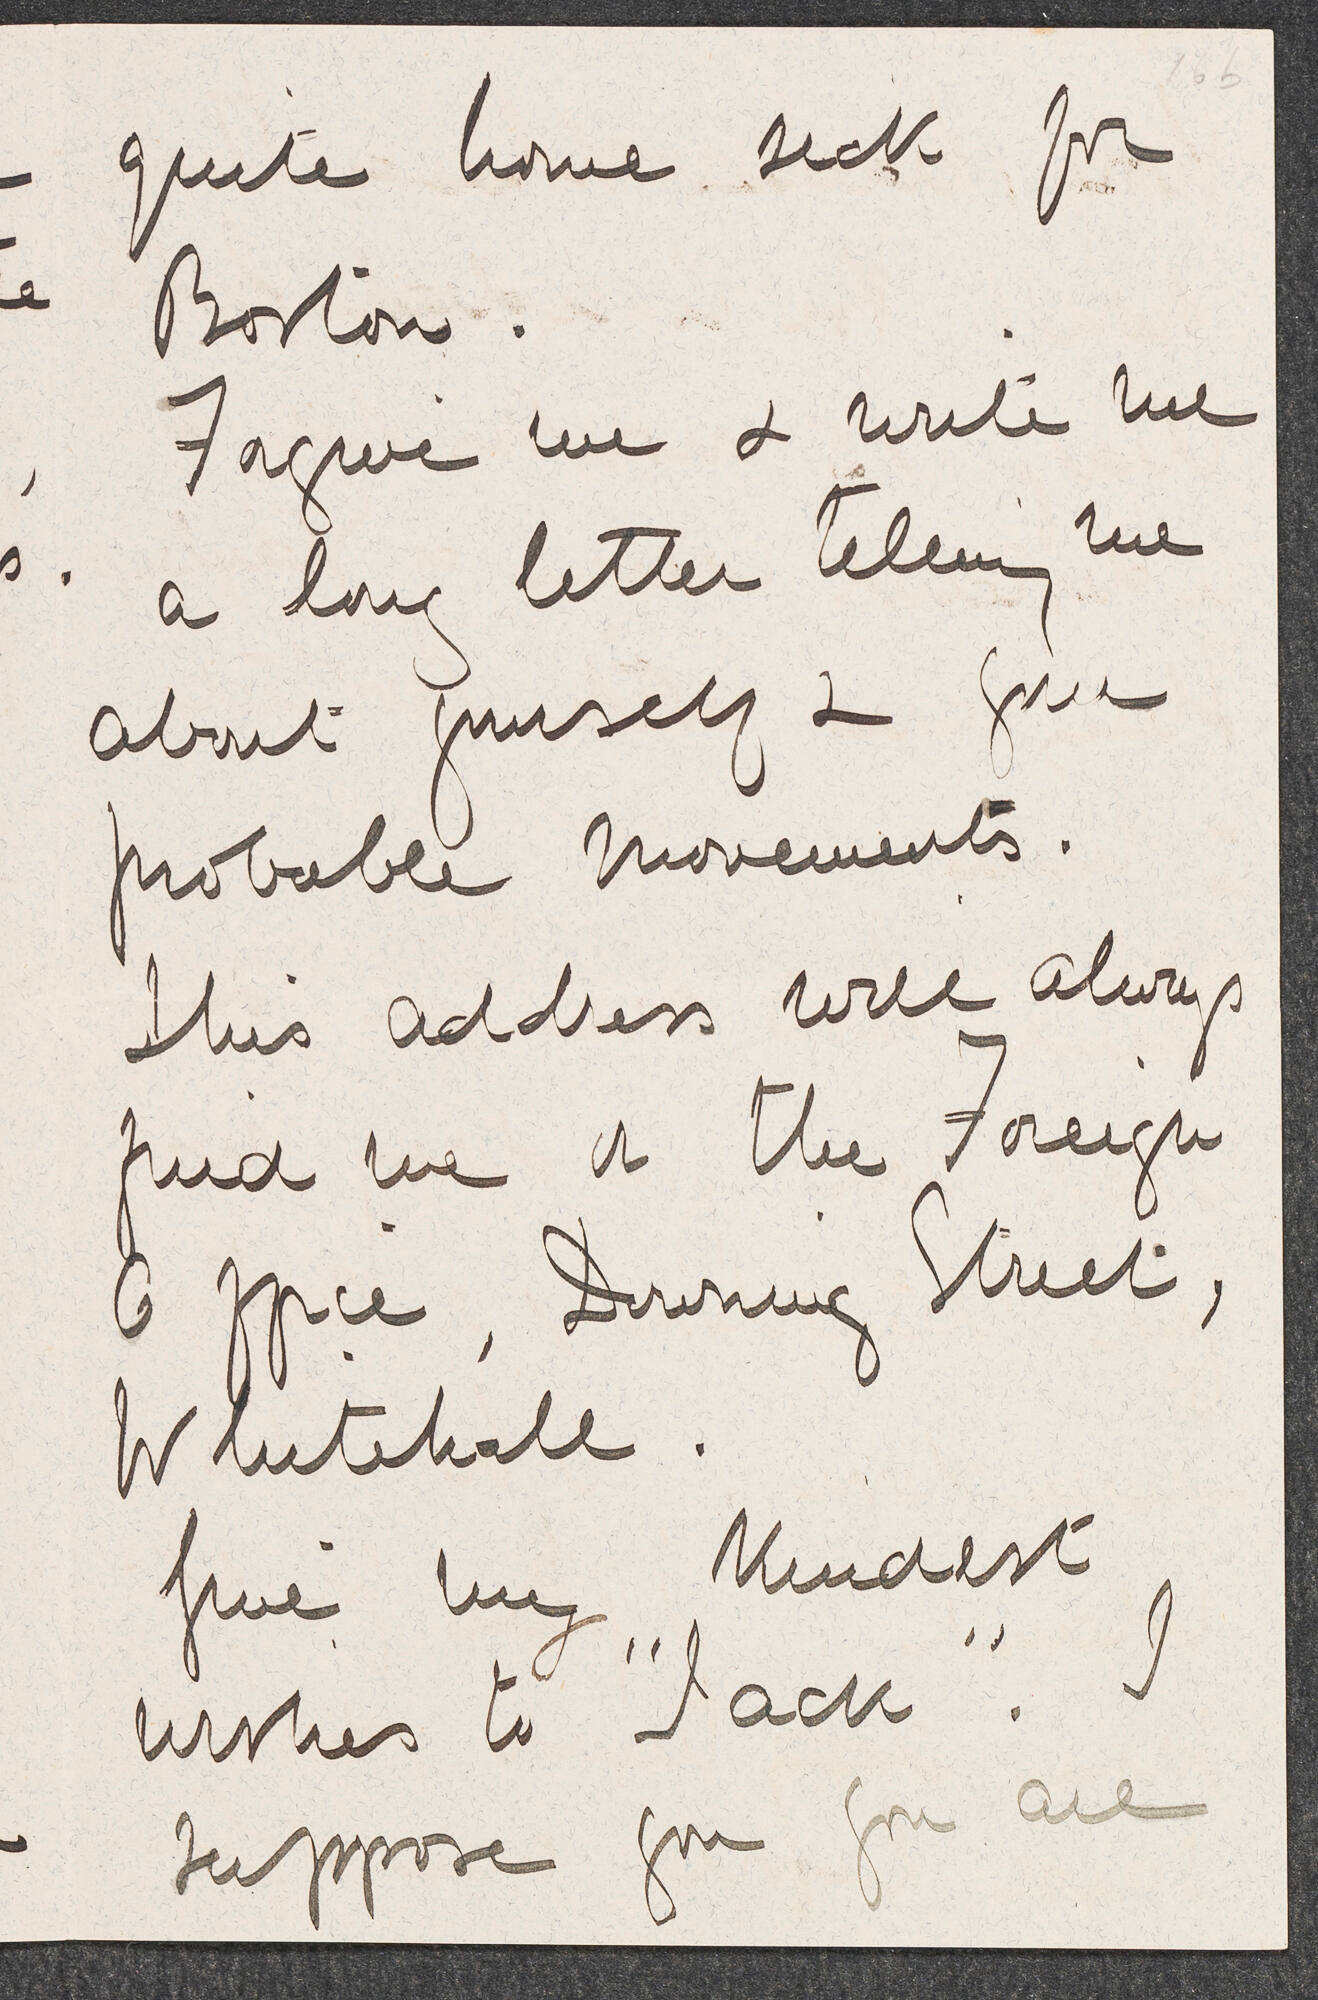 quite home sick for
Boston.
Forgive me & write me
a long letter telling me
about yourself & your
probable movements.
This address will always
find me or the Foreign
Office, Downing Street,
Whitehall.
Give my kindest
wishes to "Jack". I
suppose you you are